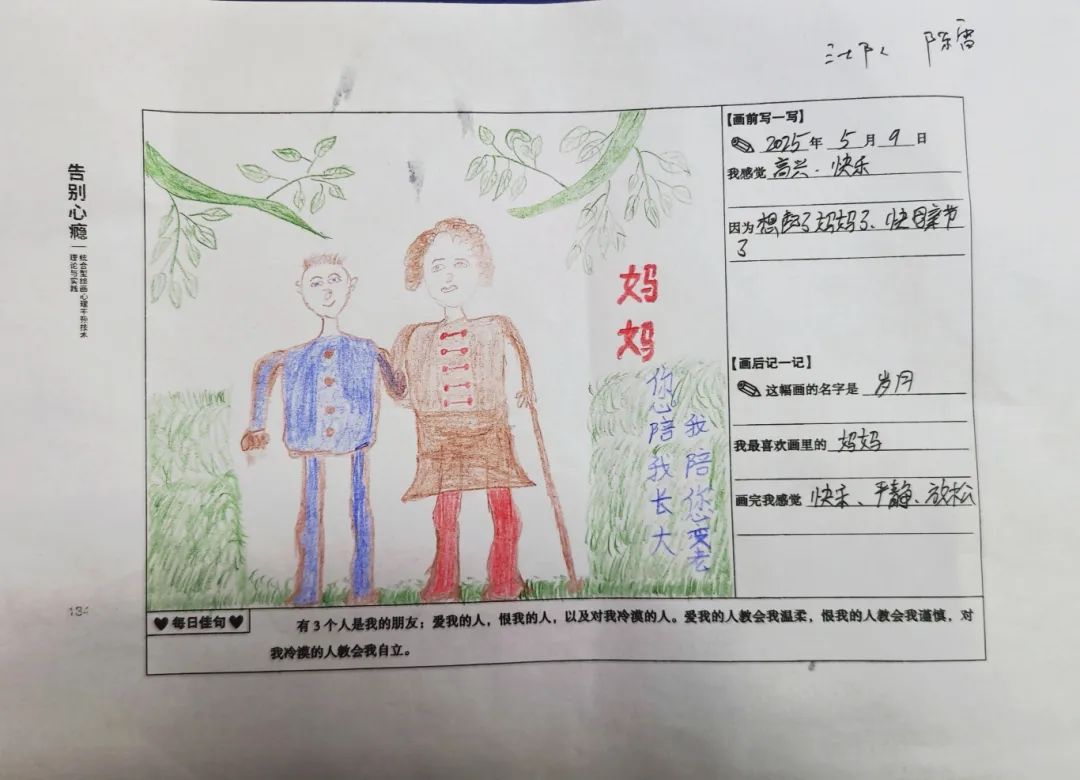 陈雷
告别心瘾
统合型绘画心理干预技术
理论与实践
134
妈
妈
您陪我长大
我陪您变老
【画前写一写】
2025年 5月 9日
我感觉 高兴、快乐
因为 想起了妈妈了、快母亲节
了
【画后记一记】
这幅画的名字是 岁月
我最喜欢画里的 妈妈
画完我感觉 快乐、平静、放松
每日佳句
有3个人是我的朋友：爱我的人，恨我的人，以及对我冷漠的人。爱我的人教会我温柔，恨我的人教会我谨慎，对
我冷漠的人教会我自立。